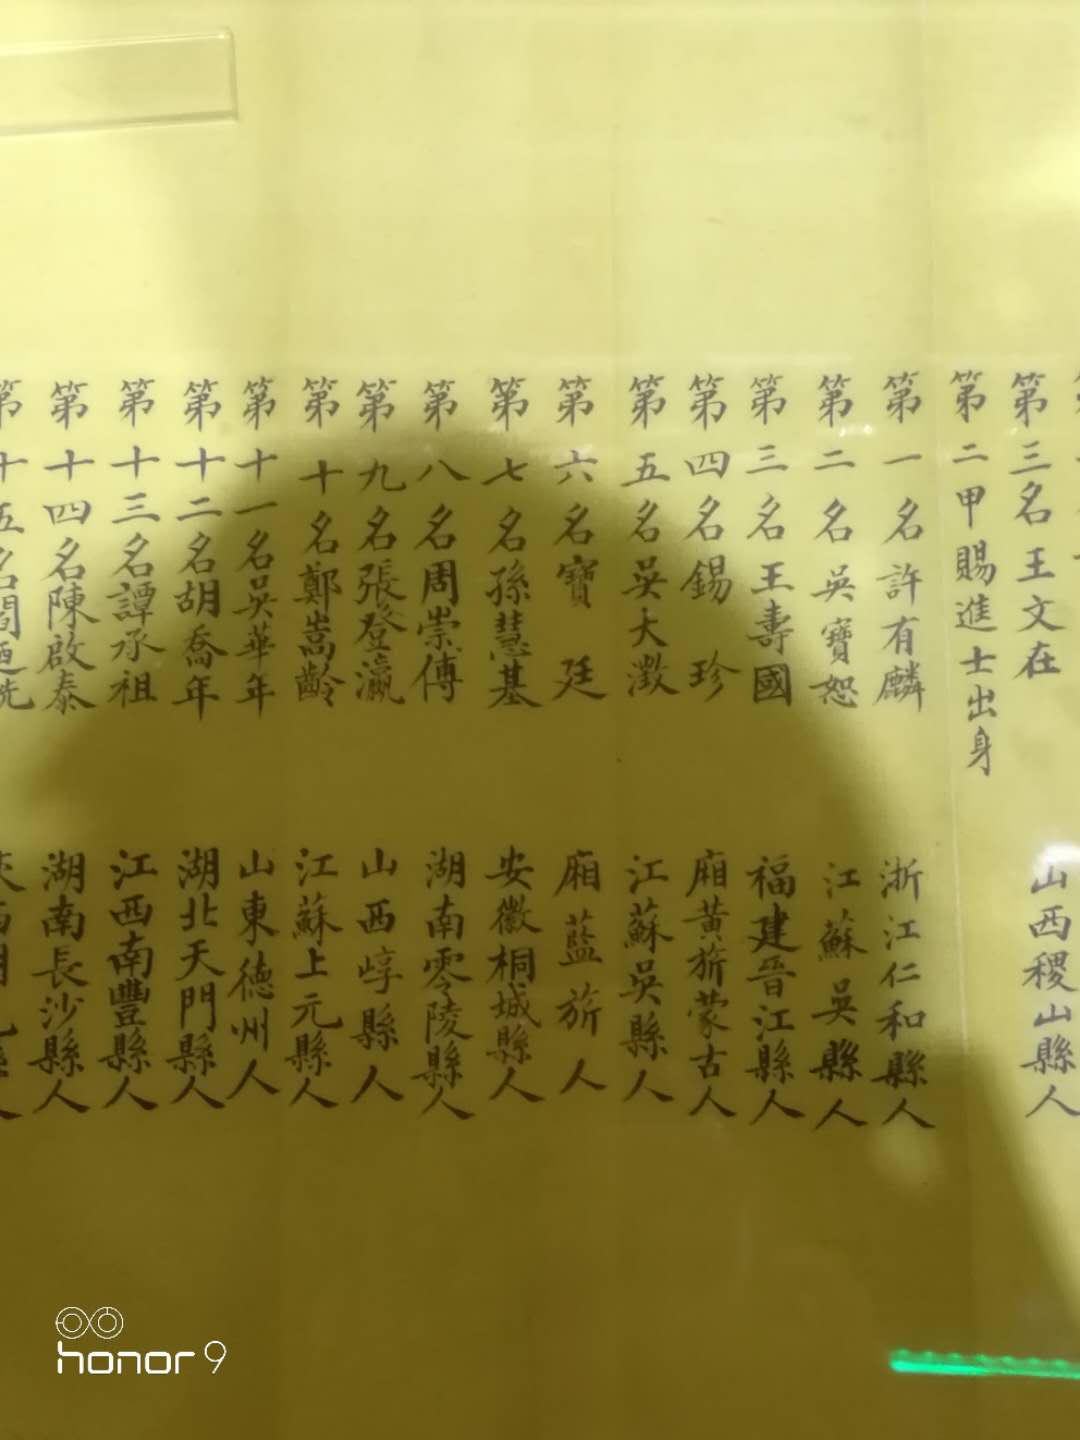 第三名王文在 山西稷山縣人
第二甲賜進士出身
第一名許有麟 浙江仁和縣人
第二名吳寶恕 江蘇吳縣人
第三名王壽國 福建晉江縣人
第四名錫珍 廂黃旂蒙古人
第五名吳大澂 江蘇吳縣人
第六名寶廷 廂藍旂人
第七名孫慧基 安徽桐城縣人
第八名周崇傅 湖南零陵縣人
第九名張登瀛 山西崞縣人
第十名鄭嵩齡 江蘇上元縣人
第十一名吳華年 山東德州人
第十二名胡喬年 湖北天門縣人
第十三名譚承祖 江西南豐縣人
第十四名陳啟泰 湖南長沙縣人
第十五名閻迺
honor 9